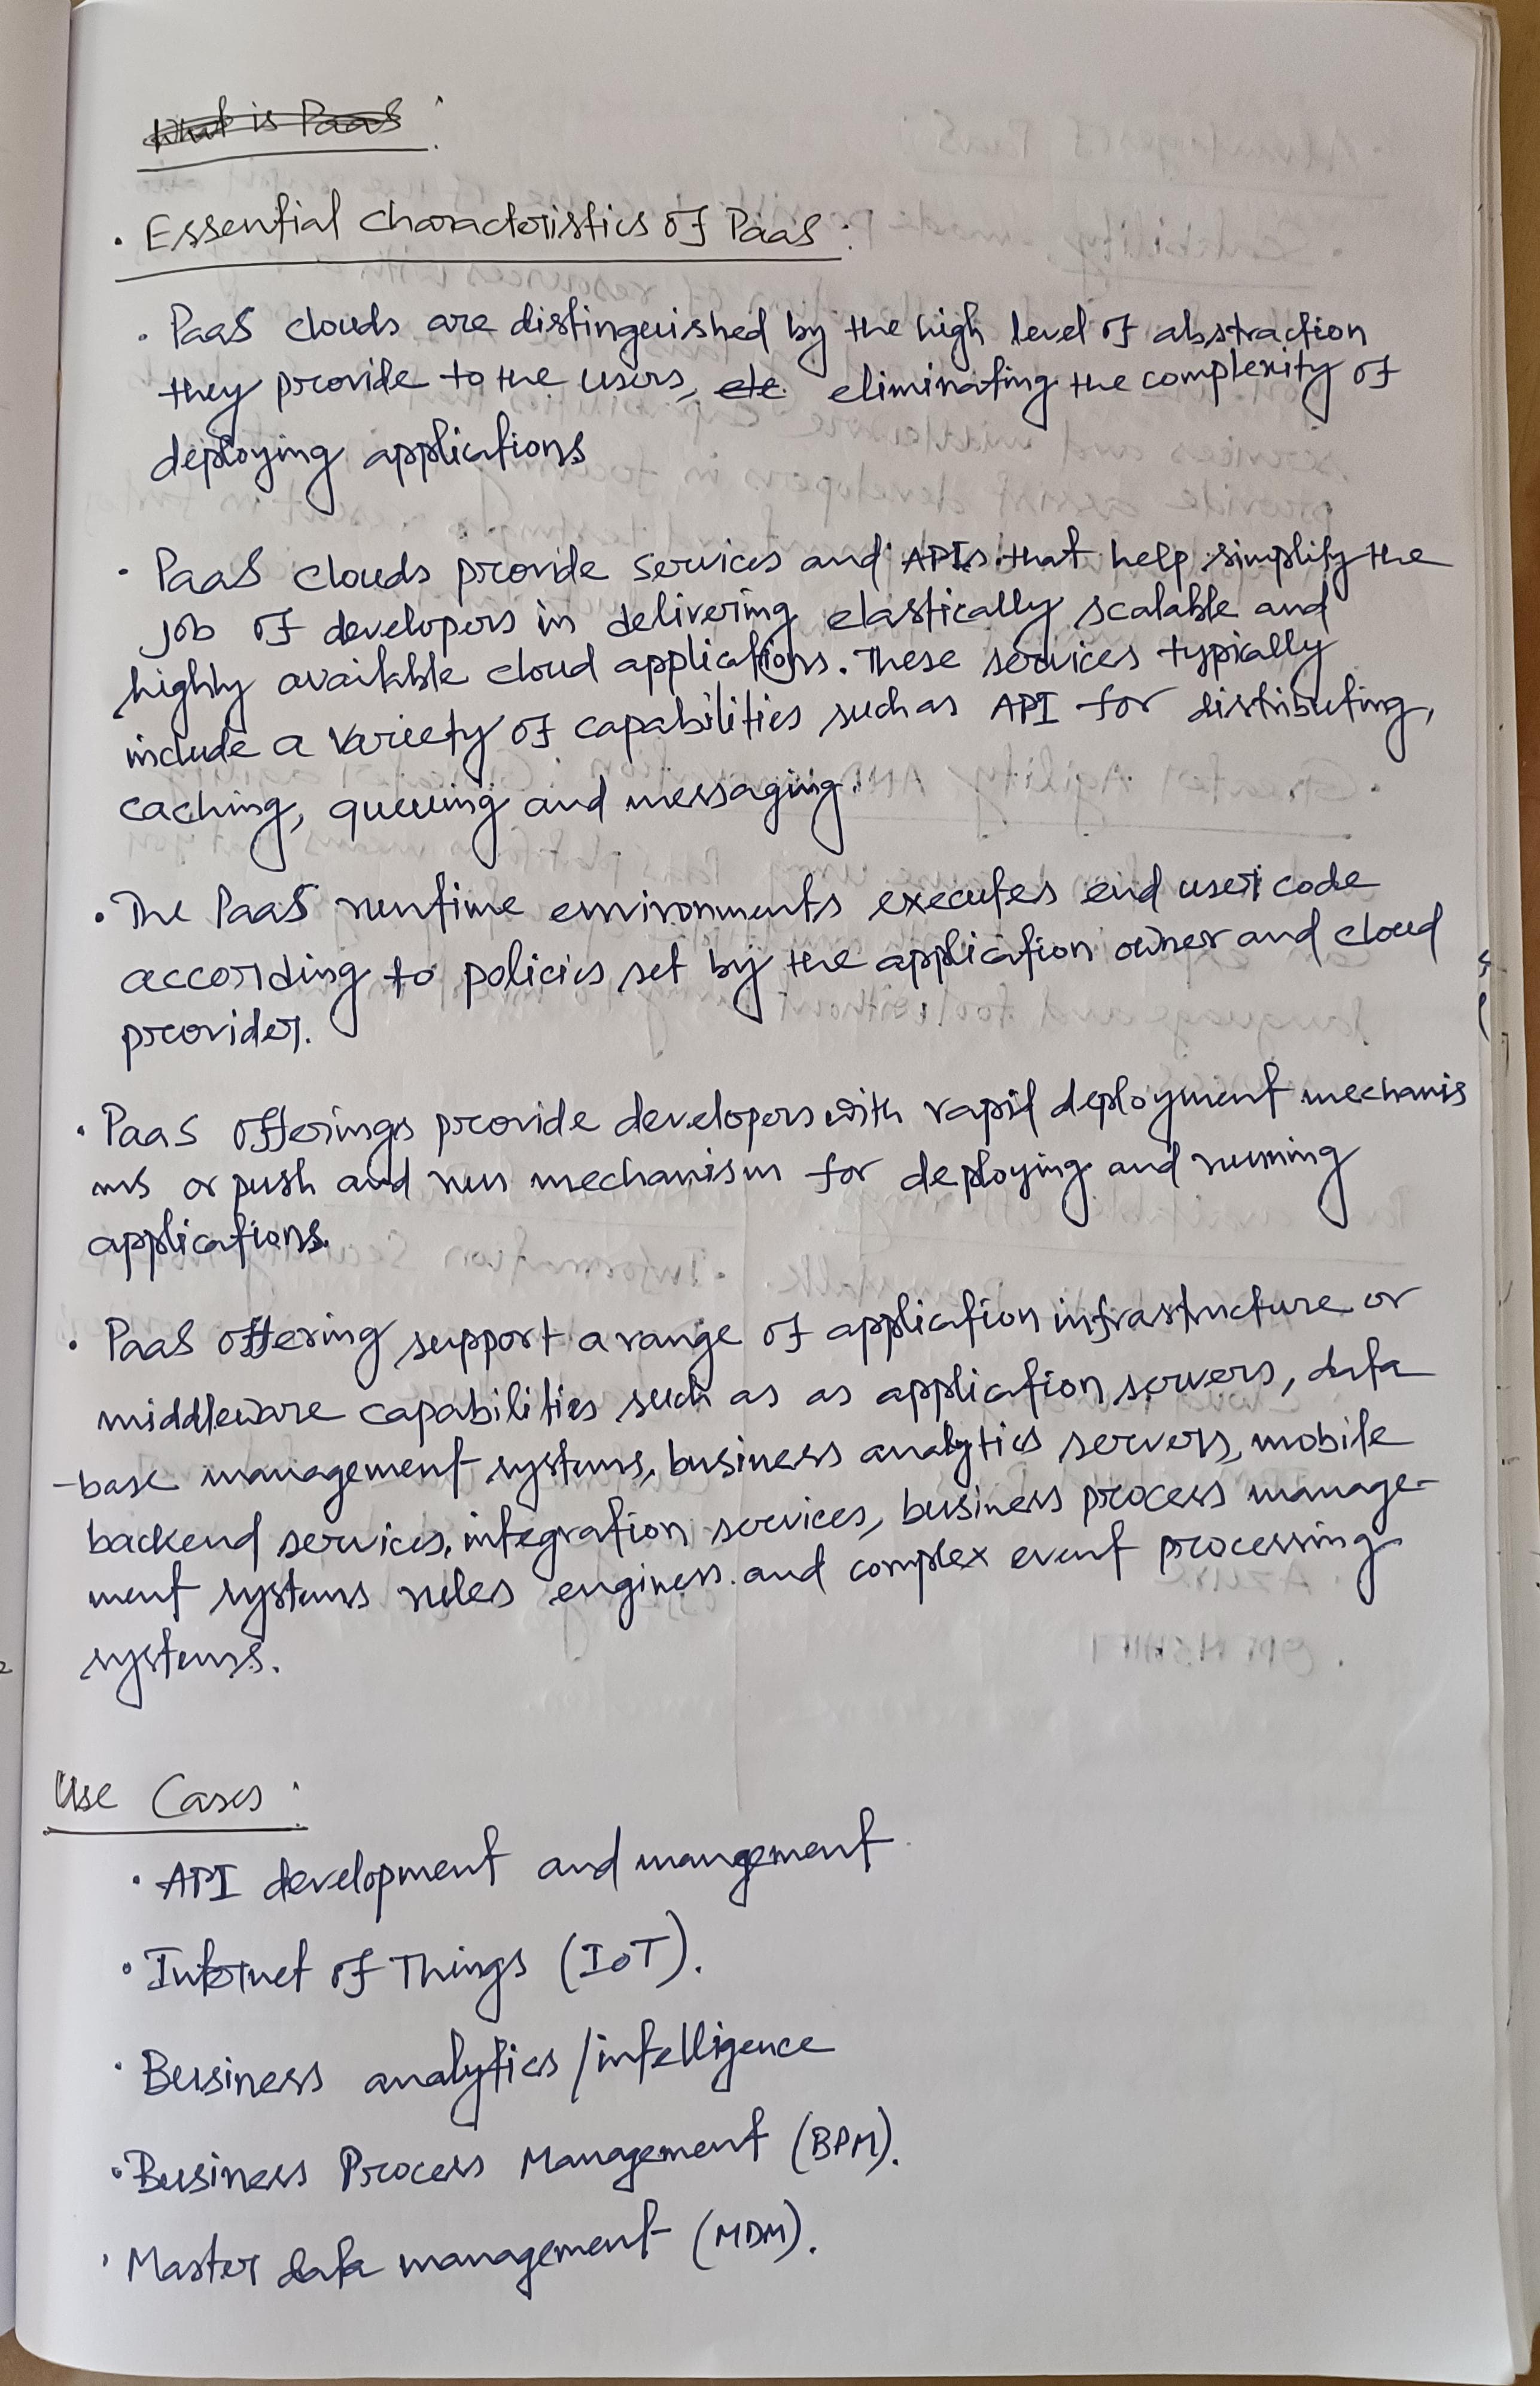 What is PaaS :
· Essential characteristics of PaaS :
· PaaS clouds are distinguished by the high level of abstraction
they provide to the users, etc eliminating the complexity of
deploying applications
· PaaS clouds provide services and APIs that help simplify the
job of developers in delivering elastically scalable and
highly available cloud applications. These services typically
include a variety of capabilities such as API for distributing,
caching, queuing and messaging.
· The PaaS runtime environments executes end user code
according to policies set by the application owner and cloud
provider.
· PaaS offerings provide developers with rapid deployment mechanis
ms or push and run mechanism for deploying and running
applications.
· PaaS offering support a range of application infrastructure or
middleware capabilities such as as application servers, data
-base management systems, business analytics servers, mobile
backend services, integration services, business process manage-
ment systems rules engines and complex event processing
systems.
Use Cases :
· API development and mangement
· Internet of Things (IoT).
· Business analytics/intelligence
· Business Process Management (BPM).
· Master data management (MDM).